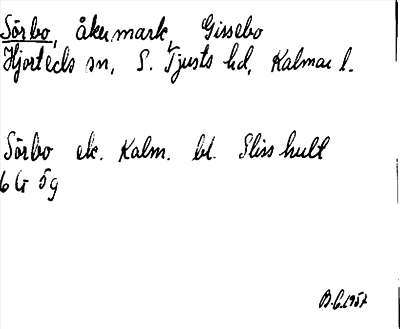 Sörbo, åkermark, Gissebo
Hjorteds sn, S. Tjusts hd, Kalmar l.
Sörbo ek. Kalm. bl. Sliss hult
6 G 5g
B.C. 1957